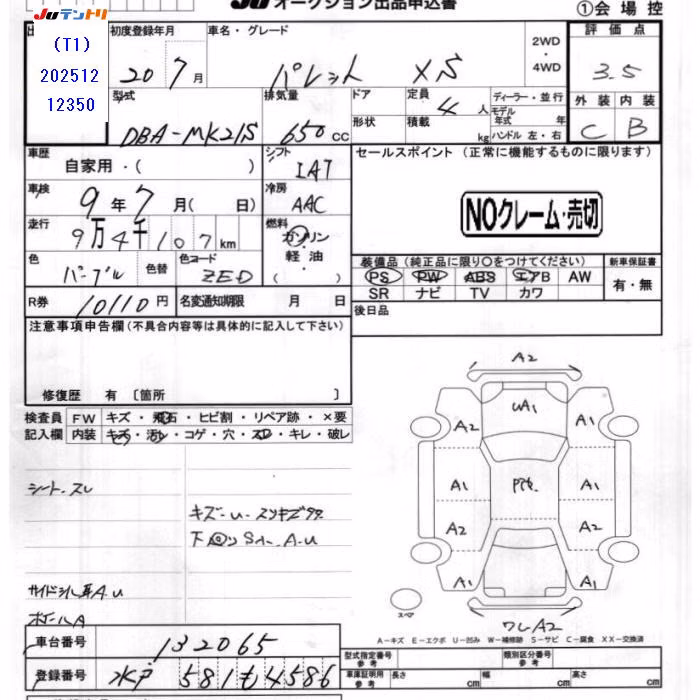 JUテントリ
JU オークション出品申込書
①会場控
(T1)
202512
12350
初度登録年月
20 7月
車名・グレード
パレット XS
2WD
・
4WD
評価点
3.5
外装 内装
C B
型式
DBA-MK21S
排気量
650 cc
ドア
形状
定員
4人
積載
kg
ディーラー・並行
モデル年式 年
ハンドル 左・右
車歴
自家用・( )
シフト
IAT
セールスポイント (正常に機能するものに限ります)
車検
9年7月( 日)
冷房
AAC
NOクレーム・売切
走行
9万4千107km
燃料
ガソリン
・
軽油
・
( )
色
パープル
色替
色コード
ZED
装備品 (純正品に限り〇をつけてください)
PS PW ABS エアB AW
SR ナビ TV カワ
新車保証書
有・無
R券
10110円
名変通知期限 月 日
後日品
注意事項申告欄(不具合内容等は具体的に記入して下さい)
修復歴 有〔箇所 〕
検査員記入欄
FW キズ・飛石・ヒビ割・リペア跡・×要
内装 キズ・汚レ・コゲ・穴・スレ・キレ・破レ
シートスレ
キズ-U-スリキズ
サイドシル
A.U
A
A2
UA1
A2
A1
A1
A1
A2
A2
A1
A1
スペア
ワレA2
A-キズ E-エクボ U-凹み W-補修跡 S-サビ C-腐食 XX-交換済
車台番号
132065
登録番号
水戸 581 も 4586
型式指定番号
参考
類別区分番号
参考
車庫証明用
参考
長さ cm
幅 cm
高さ cm